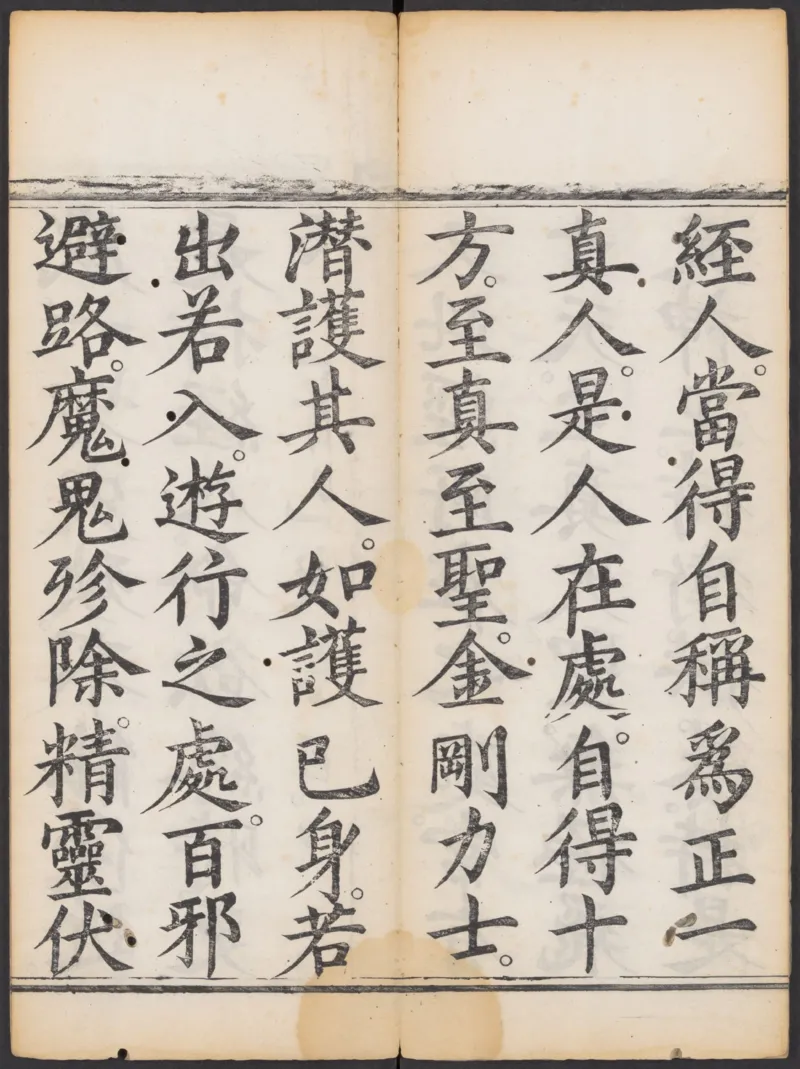 経人。當得自稱爲正一
真人。是人在處。自得十
方。至真至聖。金剛力士。
潜護其人。如護已身。若
出若入。遊行之處。百邪
避路。魔鬼殄除。精靈伏